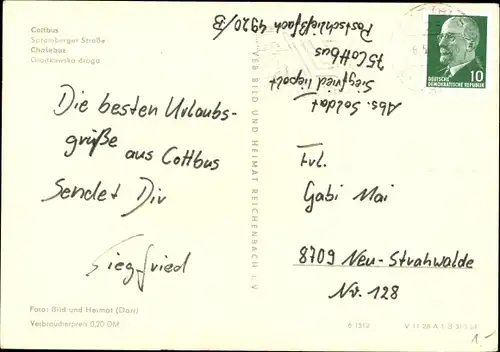 Cottbus
Spremberger Straße
Chośebuz
Grodkowska droga
Die besten Urlaubs-
grüße aus Cottbus
Sendet Dir
Siegfried
Foto: Bild und Heimat (Darr)
Verbraucherpreis 0,20 DM
VEB BILD UND HEIMAT REICHENBACH i. V.
Abs. Soldat
Siegfried
75 Cottbus
Postschließfach 4920/B
10
DEUTSCHE
DEMOKRATISCHE REPUBLIK
Frl.
Gabi Mai
8709 Neu-Strahwalde
Nr. 128
6 1512
1.-